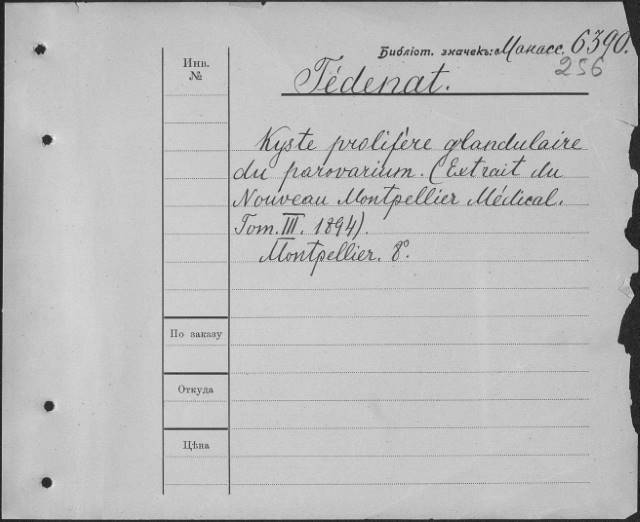 Библіот. значекъ: Манасс. 6390.
256
Инв.
№
Tédenat.
Kyste prolifère glandulaire
du parovarium. (Extrait du
Nouveau Montpellier Médical.
Tom. III. 1894).
Montpellier. 8°.
По заказу
Откуда
Цѣна